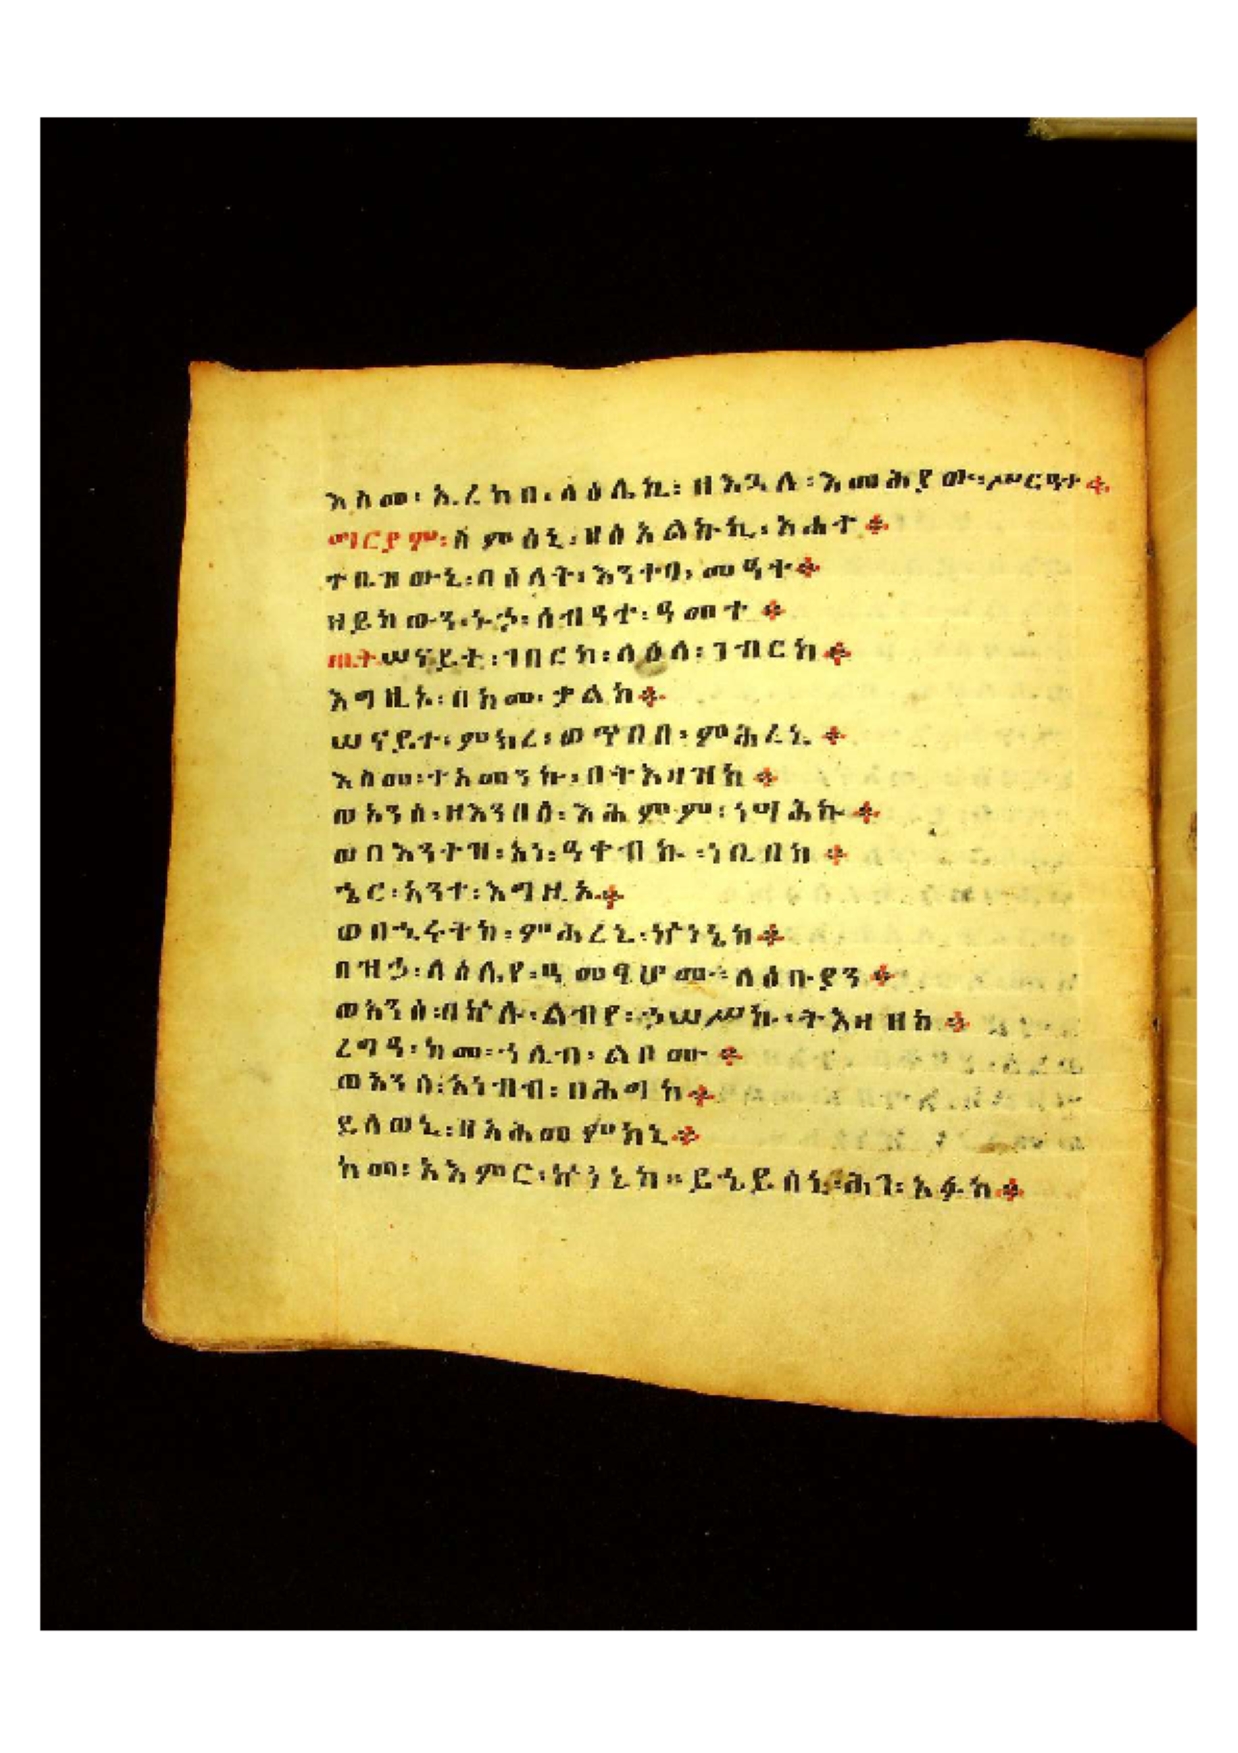 እስመ፡ ኢረከበ፡ ላዕሌኪ፡ ዘእጓለ፡ እመሕያው፡ ሥርዓተ ።
ማርያም፡ ስምዕኒ፡ ዘሰአልኩኪ፡ አሐተ ።
ተቤዝውኒ፡ በዕለት፡ እንተባ፡ መዓት ።
ዘይከውን፡ ኑኃ፡ ሰብዓተ፡ ዓመተ ።
ጤት ሠናይተ፡ ገበርከ፡ ላዕለ፡ ገብርከ ።
እግዚኦ፡ በከመ፡ ቃልከ ።
ሠናይተ፡ ምክረ፡ ወጥበበ፡ ምሕረኒ ።
እስመ፡ ተአመንኩ፡ በትእዛዝከ ።
ወአንሰ፡ ዘእንበለ፡ እሕምም፡ ነሣሕኩ ።
ወበእንተዝ፡ አነ፡ ዓቀብኩ፡ ነቢበከ ።
ኄር፡ አንተ፡ እግዚኦ ።
ወበኂሩትከ፡ ምሕረኒ፡ ኵነኔከ ።
በዝኃ፡ ላዕሌየ፡ ዓመፃሆሙ፡ ለዕቡያን ።
ወአንሰ፡ በኵሉ፡ ልብየ፡ ኃሠሥኩ፡ ትእዛዘከ ።
ረግዓ፡ ከመ፡ ኀሊብ፡ ልቦሙ ።
ወአንሰ፡ አነብብ፡ በሕግከ ።
ይሰወኒ፡ ዘአሕመምከኒ ።
ከመ፡ አእምር፡ ኵነኔከ ። ይኄይሰኒ፡ ሕገ፡ አፉከ ።